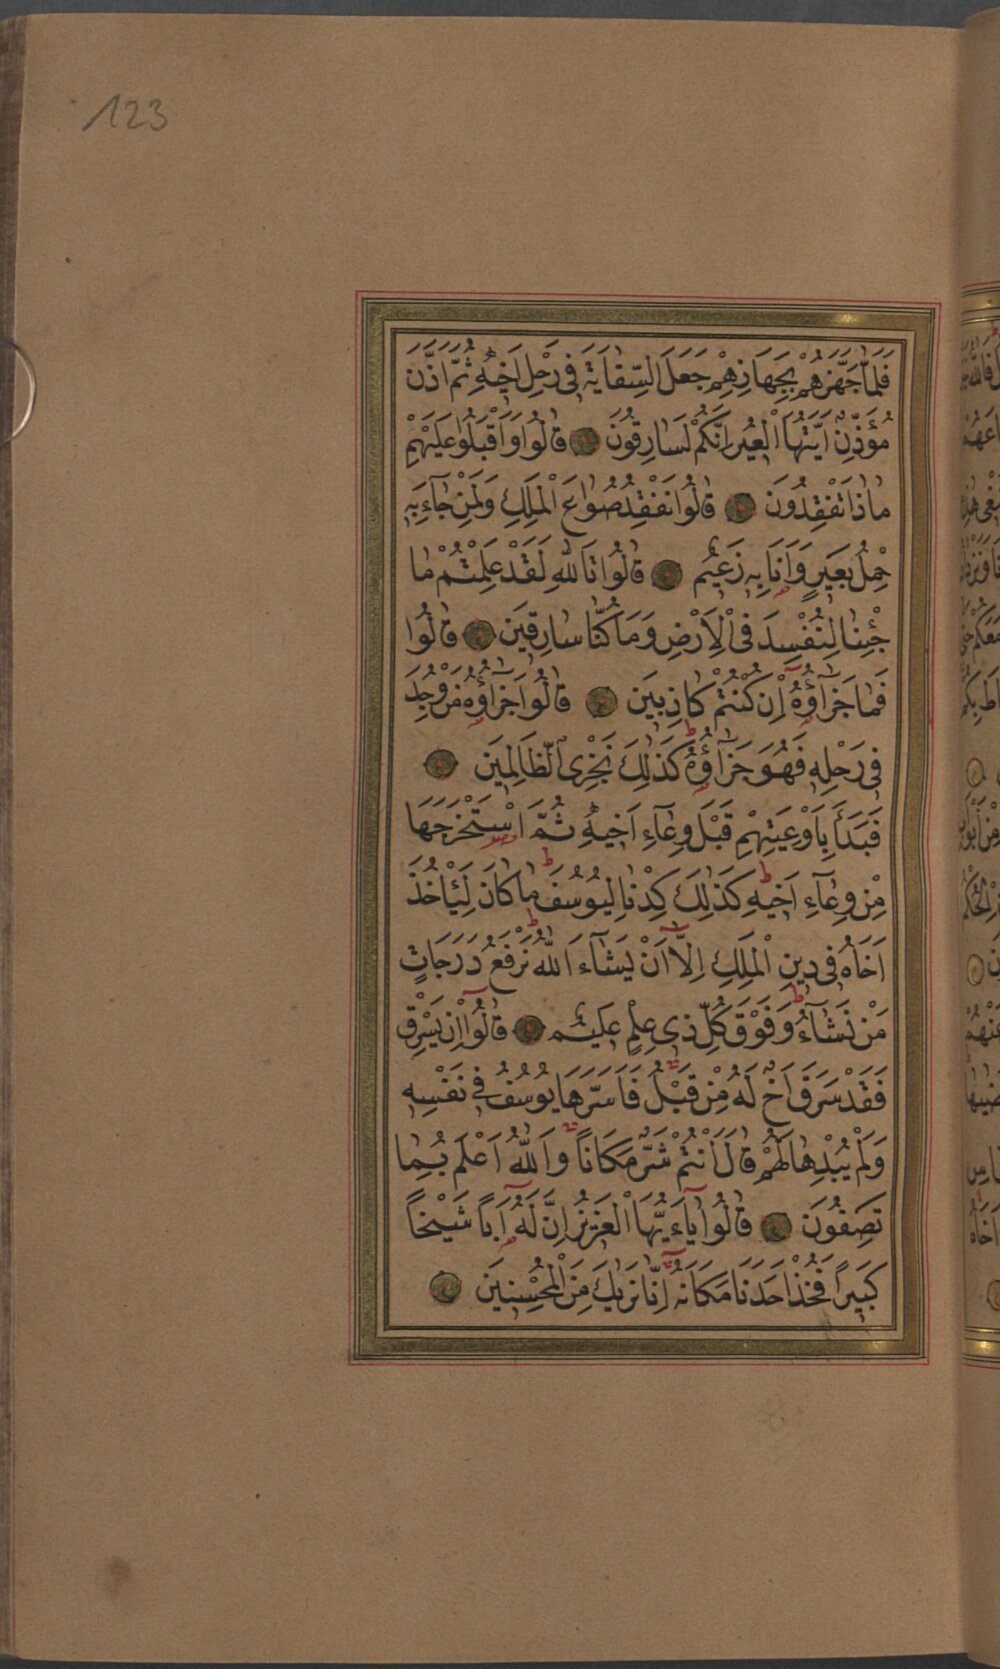 123
فَلَمَّا جَهَّزَهُمْ بِجَهَازِهِمْ جَعَلَ السِّقَايَةَ فِى رَحْلِ اَخِيهِ ثُمَّ اَذَّنَ
مُؤَذِّنٌ اَيَّتُهَا الْعِيرُ اِنَّكُمْ لَسَارِقُونَ قَالُوا وَاَقْبَلُوا عَلَيْهِمْ
مَاذَا تَفْقِدُونَ قَالُوا نَفْقِدُ صُوَاعَ الْمَلِكِ وَلِمَنْ جَآءَ بِهِ
حِمْلُ بَعِيرٍ وَاَنَا بِهِ زَعِيمٌ قَالُوا تَاللّٰهِ لَقَدْ عَلِمْتُمْ مَا
جِئْنَا لِنُفْسِدَ فِى الْاَرْضِ وَمَا كُنَّا سَارِقِينَ قَالُوا
فَمَا جَزَآؤُهُ اِنْ كُنْتُمْ كَاذِبِينَ قَالُوا جَزَآؤُهُ مَنْ وُجِدَ
فِى رَحْلِهِ فَهُوَ جَزَآؤُهُ كَذٰلِكَ نَجْزِى الظَّالِمِينَ
فَبَدَاَ بِاَوْعِيَتِهِمْ قَبْلَ وِعَآءِ اَخِيهِ ثُمَّ اسْتَخْرَجَهَا
مِنْ وِعَآءِ اَخِيهِ كَذٰلِكَ كِدْنَا لِيُوسُفَ مَا كَانَ لِيَاْخُذَ
اَخَاهُ فِى دِينِ الْمَلِكِ اِلَّا اَنْ يَشَآءَ اللّٰهُ نَرْفَعُ دَرَجَاتٍ
مَنْ نَشَآءُ وَفَوْقَ كُلِّ ذِى عِلْمٍ عَلِيمٌ قَالُوا اِنْ يَسْرِقْ
فَقَدْ سَرَقَ اَخٌ لَهُ مِنْ قَبْلُ فَاَسَرَّهَا يُوسُفُ فِى نَفْسِهِ
وَلَمْ يُبْدِهَا لَهُمْ قَالَ اَنْتُمْ شَرٌّ مَكَانًا وَاللّٰهُ اَعْلَمُ بِمَا
تَصِفُونَ قَالُوا يَآ ءَيُّهَا الْعَزِيزُ اِنَّ لَهُ اَبًا شَيْخًا
كَبِيرًا فَخُذْ اَحَدَنَا مَكَانَهُ اِنَّا نَرٰيكَ مِنَ الْمُحْسِنِينَ